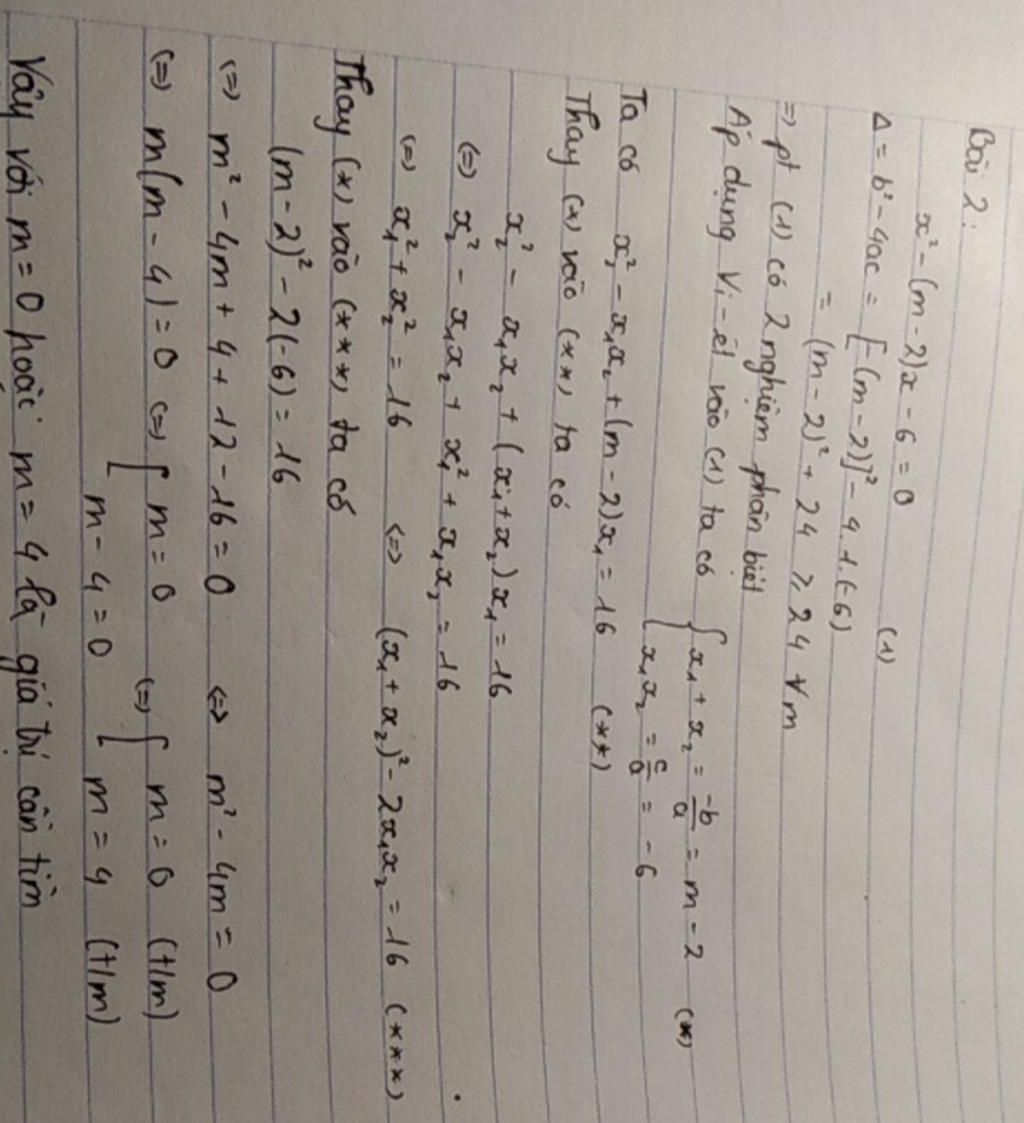 Bài 2:
x² - (m - 2)x - 6 = 0 (1)
Δ = b² - 4ac = [-(m - 2)]² - 4.1.(-6)
= (m - 2)² + 24 ≥ 24 ∀m
=> pt (1) có 2 nghiệm phân biệt
Áp dụng Vi-ét vào (1) ta có { x₁ + x₂ = -b/a = m - 2 (*)
x₁x₂ = c/a = -6
Ta có x₂² - x₁x₂ + (m - 2)x₁ = 16 (**)
Thay (*) vào (**) ta có
x₂² - x₁x₂ + (x₁ + x₂)x₁ = 16
(=) x₂² - x₁x₂ + x₁² + x₁x₂ = 16
(=) x₁² + x₂² = 16 (=) (x₁ + x₂)² - 2x₁x₂ = 16 (***)
Thay (*) vào (***) ta có
(m - 2)² - 2(-6) = 16
(=) m² - 4m + 4 + 12 - 16 = 0 (=) m² - 4m = 0
(=) m(m - 4) = 0 (=) [ m = 0 (=) [ m = 0 (t/m)
m - 4 = 0 m = 4 (t/m)
Vậy với m = 0 hoặc m = 4 là giá trị cần tìm